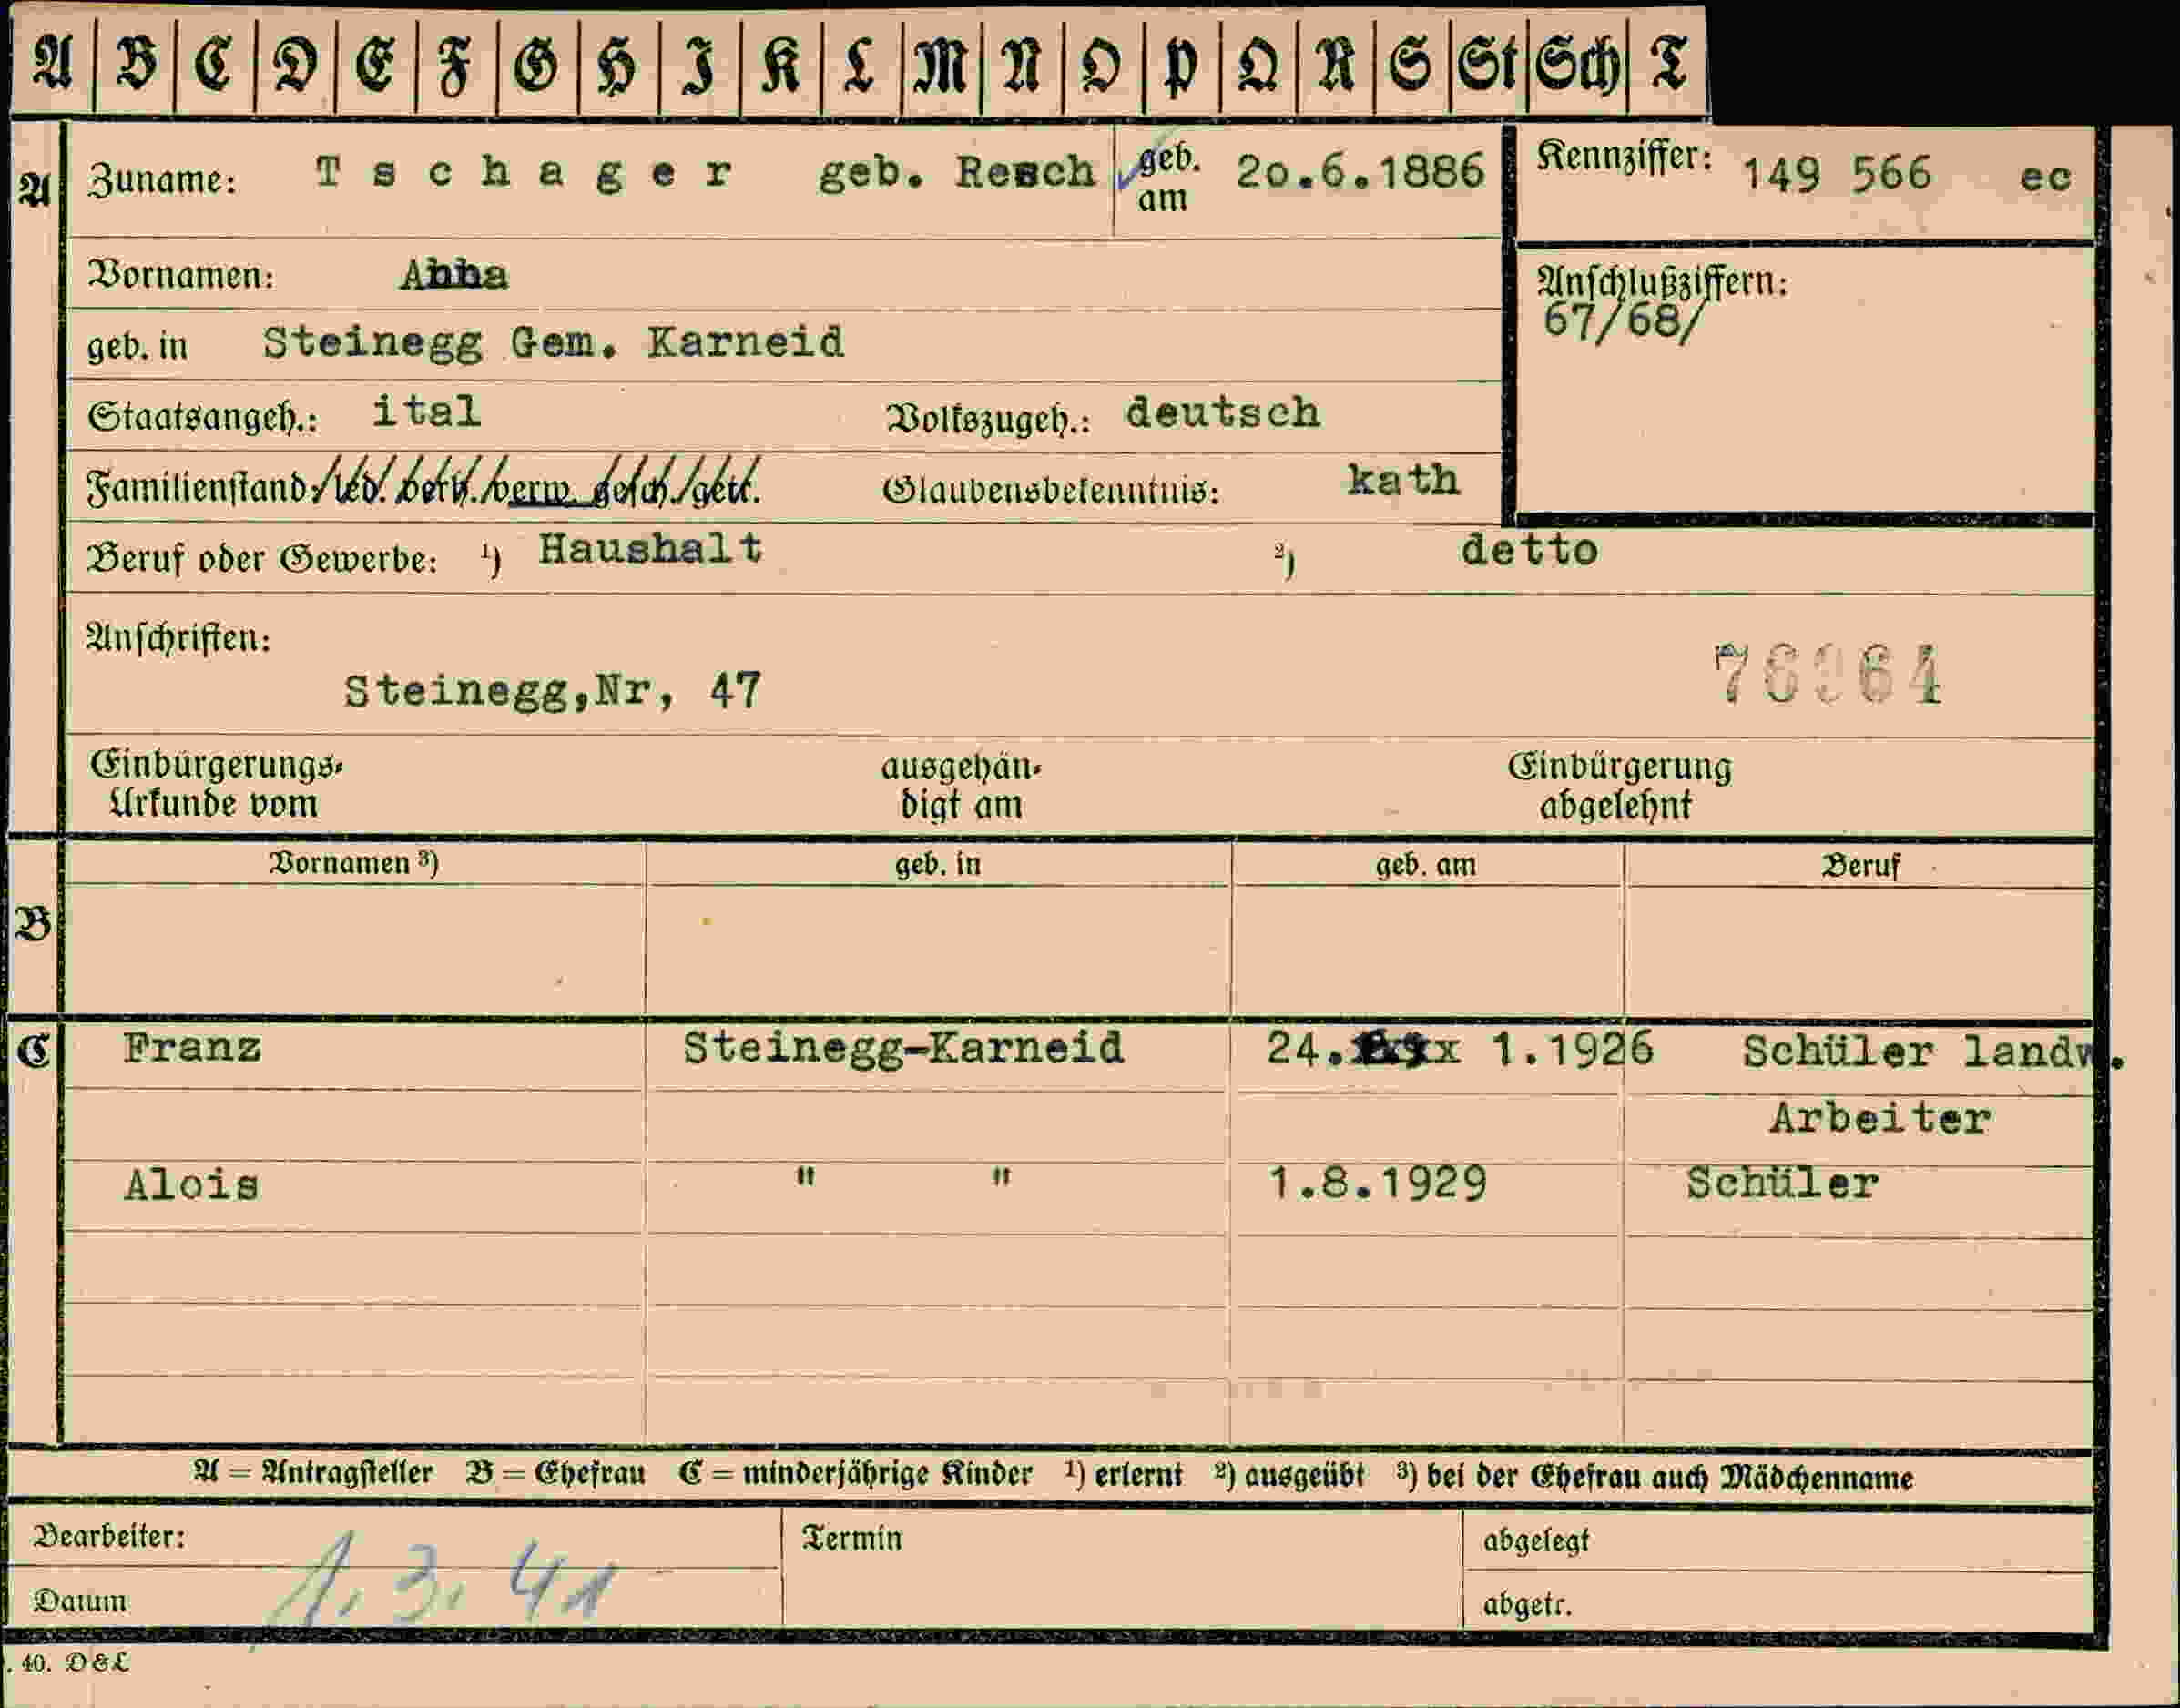 A B C D E F G H I K L M N O P Q R S St Sch T
A Zuname: Tschager geb. Resch geb. am 20.6.1886 Kennziffer: 149 566 ec
Vornamen: Anna
Anschlußziffern:
67/68/
geb. in Steinegg Gem. Karneid
Staatsangeh.: ital Volkszugeh.: deutsch
Familienstand: led. verh. verw. gesch. getr. Glaubensbekenntnis: kath
Beruf oder Gewerbe: ¹) Haushalt ²) detto
Anschriften:
Steinegg,Nr, 47
Einbürgerungs- ausgehän- Einbürgerung
Urkunde vom digt am abgelehnt
Vornamen ³) geb. in geb. am Beruf
B
C Franz Steinegg-Karneid 24. 1.1926 Schüler landw.
Arbeiter
Alois " " 1.8.1929 Schüler
A = Antragsteller B = Ehefrau C = minderjährige Kinder ¹) erlernt ²) ausgeübt ³) bei der Ehefrau auch Mädchenname
Bearbeiter: Termin abgelegt
Datum 1.3.41 abgetr.
. 40. D & L